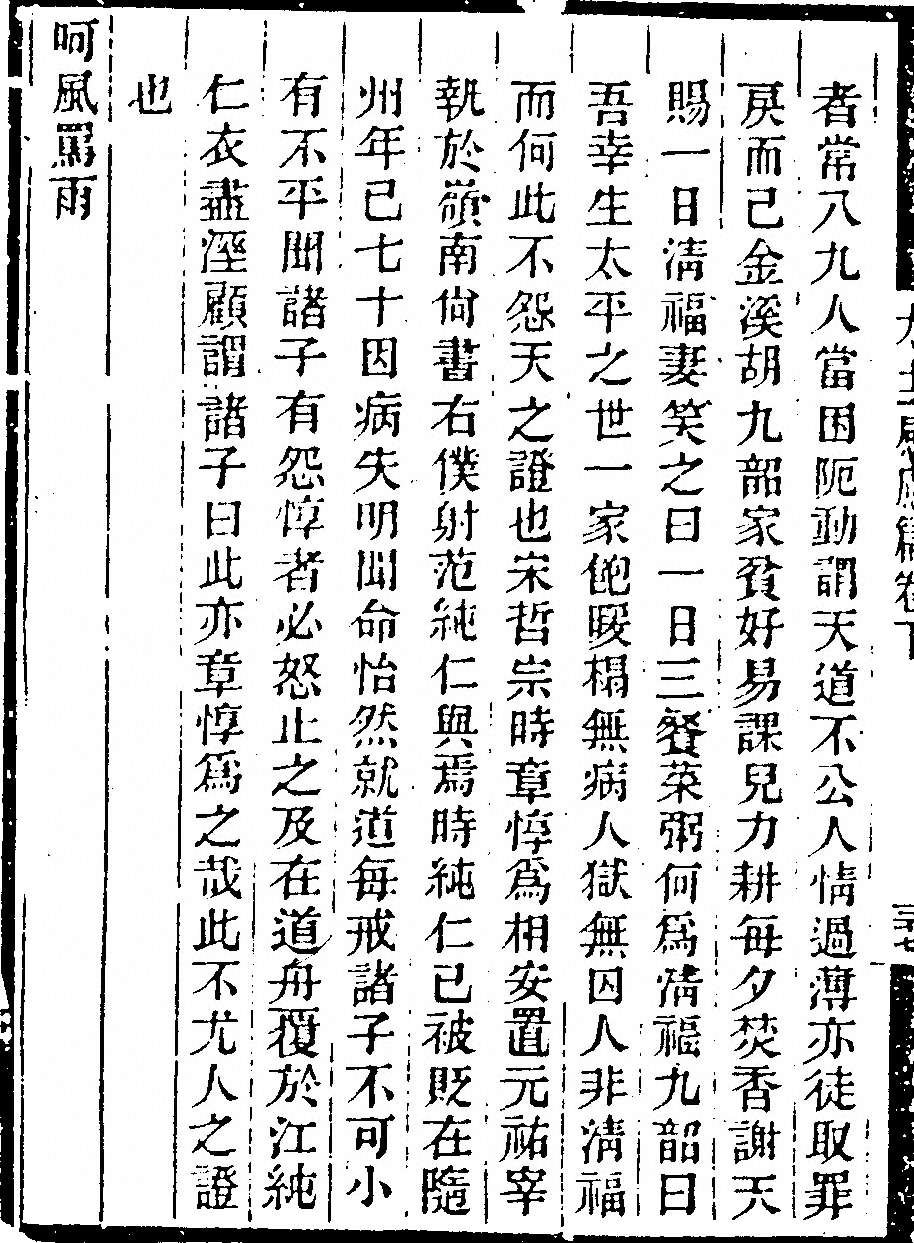 者常八九人當困阨動謂天道不公人情過薄亦徒取罪
戾而已金溪胡九韶家貧好易課兒力耕每夕焚香謝天
賜一日淸福妻笑之曰一日三餐菜粥何爲淸福九韶曰
吾幸生太平之世一家飽暖榻無病人獄無囚人非淸福
而何此不怨天之證也宋哲宗時章惇爲相安置元祐宰
執於嶺南尙書右僕射范純仁與焉時純仁已被旣在隨
州年已七十因病失明聞命怡然就道每戒諸子不可小
有不平聞諸子有怨惇者必怒止之及在道舟覆於江純
仁衣盡溼顧謂諸子曰此亦章惇爲之哉此不尤人之證
也
呵風罵雨